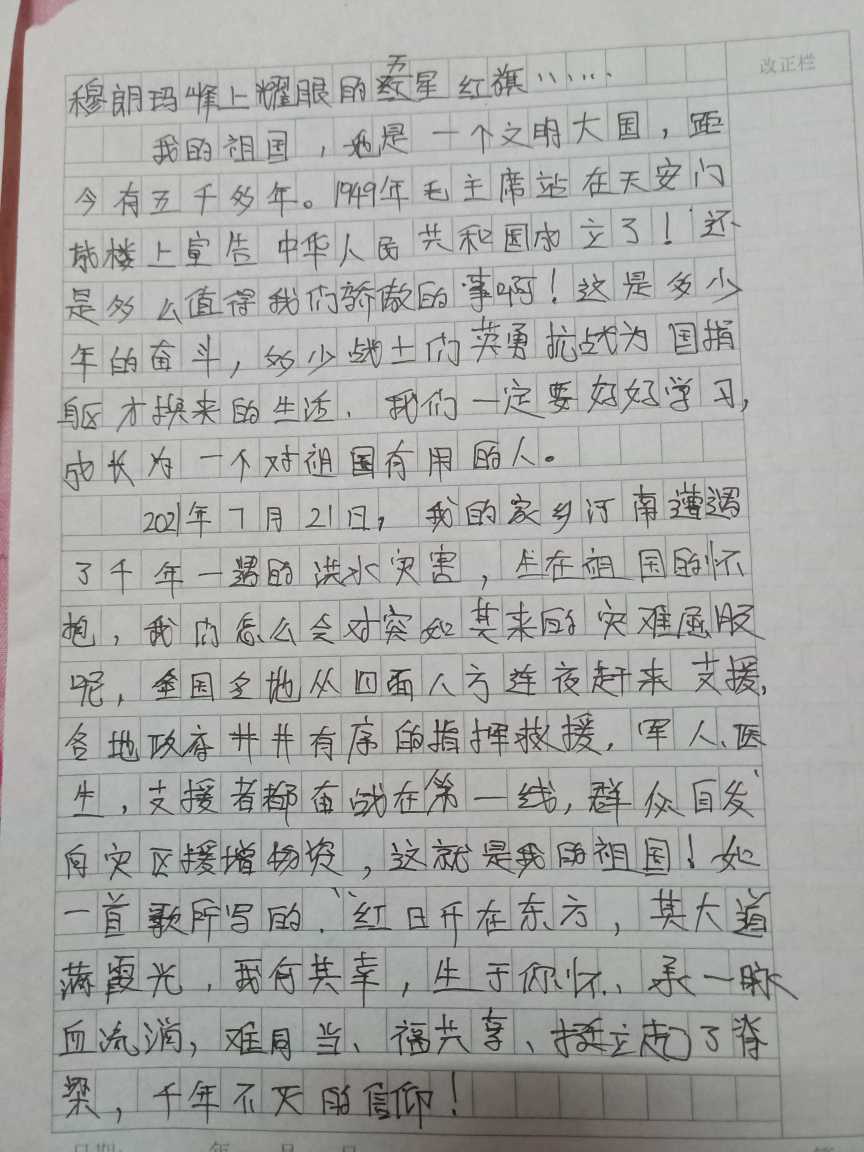 改正栏
穆朗玛峰上耀眼的五星红旗……
我的祖国，她是一个文明大国，距
今有五千多年。1949年毛主席站在天安门
城楼上宣告中华人民共和国成立了！这
是多么值得我们骄傲的事啊！这是多少
年的奋斗，多少战士们英勇抗战为国捐
躯才换来的生活，我们一定要好好学习，
成长为一个对祖国有用的人。
2021年7月21日，我的家乡河南遭遇
了千年一遇的洪水灾害，生在祖国的怀
抱，我们怎么会对突如其来的灾难屈服
呢，全国全地从四面八方连夜赶来支援，
各地政府井井有序的指挥救援，军人、医
生，支援者都奋战在第一线，群众自发
向灾区援增物资，这就是我的祖国！如
一首歌所写的，“红日升在东方，其大道
满霞光，我何其幸，生于你怀、承一脉
血流淌，难同当、福共享、挺立起了脊
梁，千年不灭的信仰！
日期: 年 月 日 第